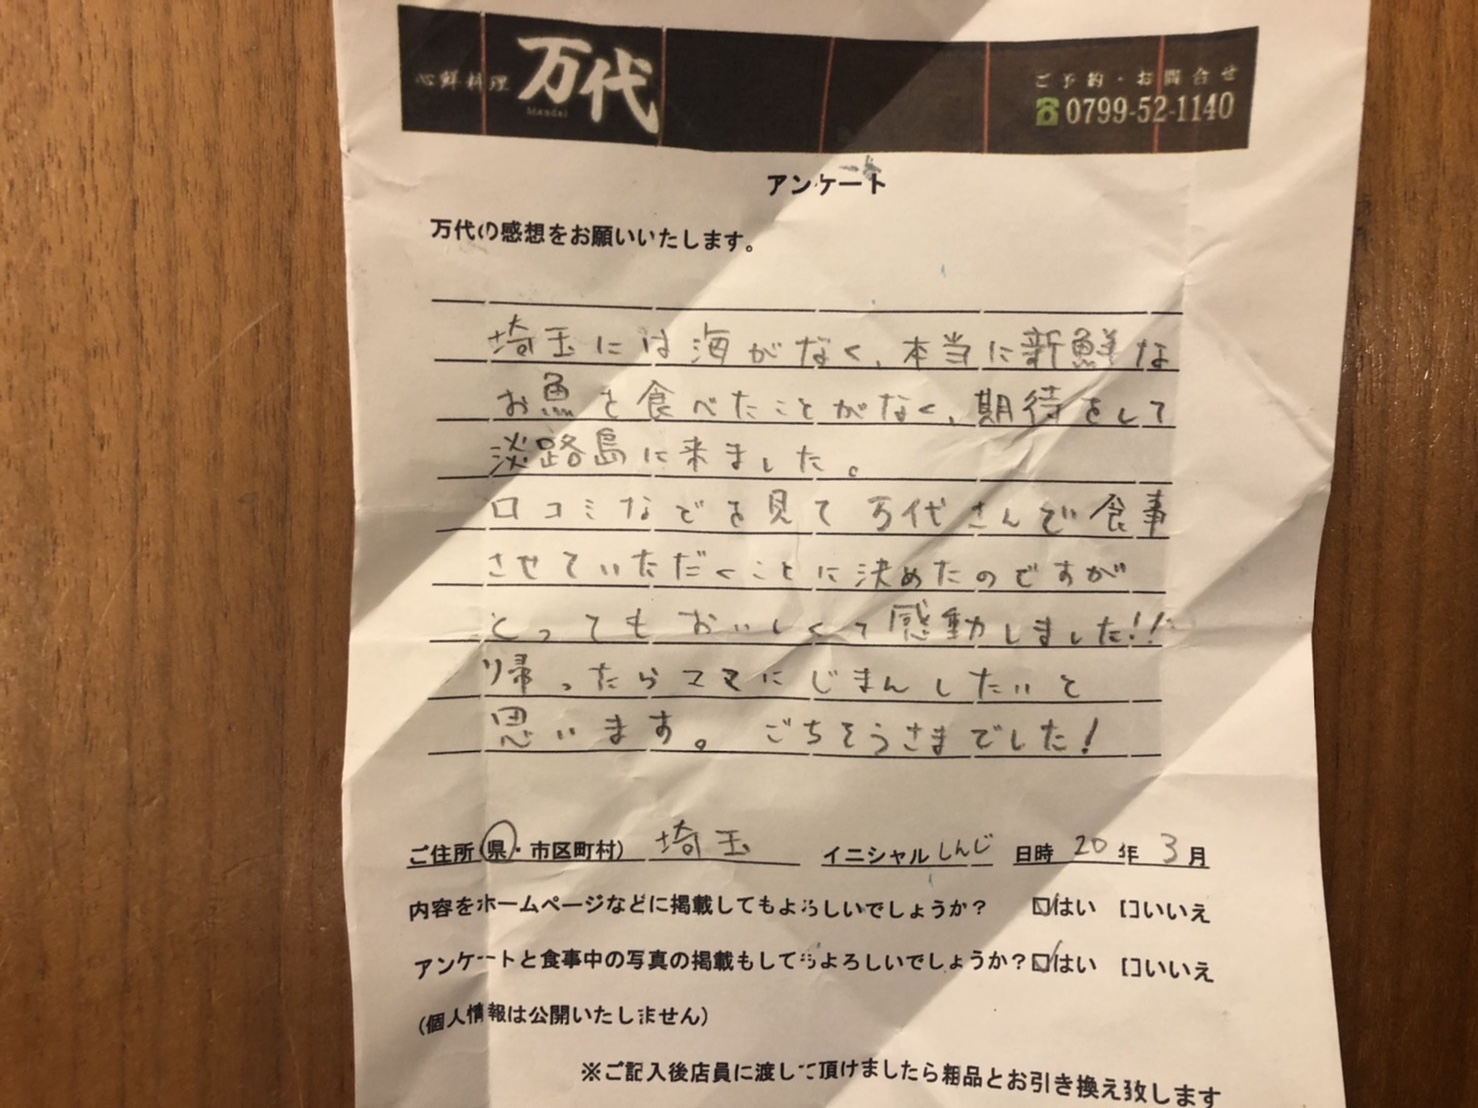 心鮮料理 万代
Mandai
ご予約・お問合せ
☎0799-52-1140
アンケート
万代の感想をお願いいたします。
埼玉には海がなく、本当に新鮮な
お魚を食べたことがなく、期待をして
淡路島に来ました。
口コミなどを見て万代さんで食事
させていただくことに決めたのですが
とってもおいしくて感動しました!!
帰ったらママにじまんしたいと
思います。ごちそうさまでした!
ご住所(県・市区町村) 埼玉 イニシャル しんじ 日時 20年 3月
内容をホームページなどに掲載してもよろしいでしょうか? ☑はい □いいえ
アンケートと食事中の写真の掲載もしてもよろしいでしょうか?☑はい □いいえ
(個人情報は公開いたしません)
※ご記入後店員に渡して頂けましたら粗品とお引き換え致します